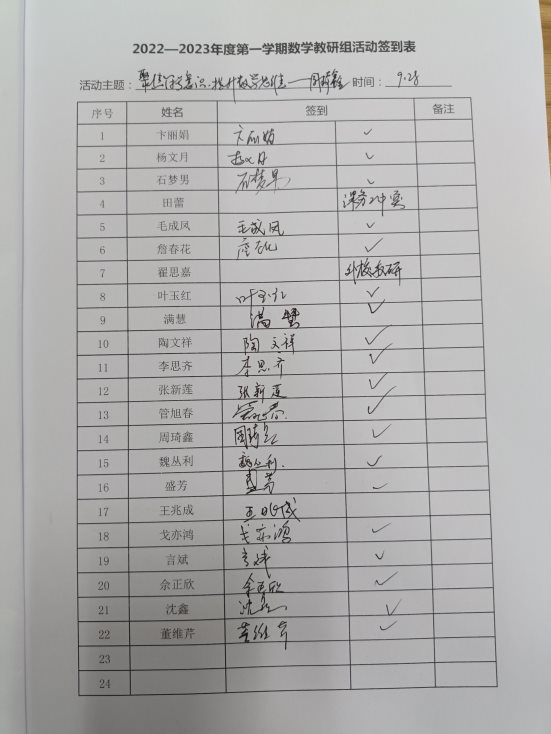 2022—2023年度第一学期数学教研组活动签到表
活动主题：聚焦符号意识·提升数学思维——周琦鑫 时间：9.28
序号 姓名 签到 备注
1 卞丽娟 卞丽娟 ✓
2 杨文月 杨文月 ✓
3 石梦男 石梦男 ✓
4 田蕾 课务冲突
5 毛成凤 毛成凤 ✓
6 詹春花 詹春花 ✓
7 翟思嘉 外校教研
8 叶玉红 叶玉红 ✓
9 满慧 满慧 ✓
10 陶文祥 陶文祥 ✓
11 李思齐 李思齐 ✓
12 张新莲 张新莲 ✓
13 管旭春 管旭春 ✓
14 周琦鑫 周琦鑫 ✓
15 魏丛利 魏丛利 ✓
16 盛芳 盛芳 ✓
17 王兆成 王兆成
18 戈亦鸿 戈亦鸿 ✓
19 言斌 言斌 ✓
20 佘正欣 佘正欣 ✓
21 沈鑫 沈鑫 ✓
22 董维芹 董维芹 ✓
23
24